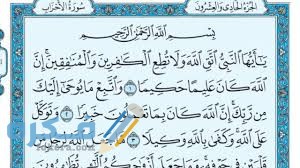 الجزء الحادي والعشرون
سورة الأحزاب
بِسْمِ اللَّهِ الرَّحْمَٰنِ الرَّحِيمِ
يَا أَيُّهَا النَّبِيُّ اتَّقِ اللَّهَ وَلَا تُطِعِ الْكَافِرِينَ وَالْمُنَافِقِينَ إِنَّ
اللَّهَ كَانَ عَلِيمًا حَكِيمًا ١ وَاتَّبِعْ مَا يُوحَىٰ إِلَيْكَ
مِن رَّبِّكَ إِنَّ اللَّهَ كَانَ بِمَا تَعْمَلُونَ خَبِيرًا ٢ وَتَوَكَّلْ
عَلَى اللَّهِ وَكَفَىٰ بِاللَّهِ وَكِيلًا ٣ مَّا جَعَلَ اللَّهُ لِرَجُلٍ مِّن